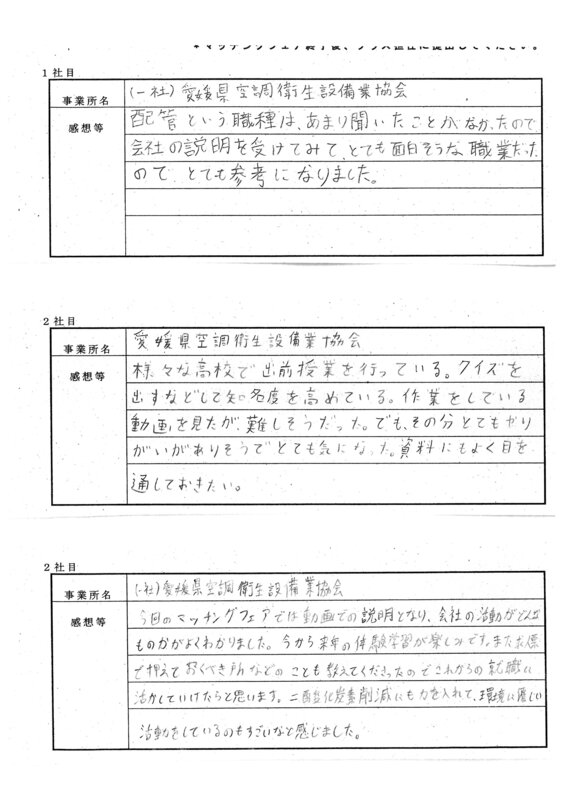 ＊マッチングフェア終了後、クラス担任に提出してください。
1社目
事業所名 (一社)愛媛県空調衛生設備業協会
感想等 配管という職種は、あまり聞いたことがなかったので
会社の説明を受けてみて、とても面白そうな職業だった
ので、とても参考になりました。
2社目
事業所名 愛媛県空調衛生設備業協会
感想等 様々な高校で出前授業を行っている。クイズを
出すなどして知名度を高めている。作業をしている
動画を見たが難しそうだった。でも、その分とてもやり
がいがありそうでとても気になった。資料にもよく目を
通しておきたい。
2社目
事業所名 (一社)愛媛県空調衛生設備業協会
感想等 今日のマッチングフェアでは動画での説明となり、会社の活動がどんな
ものかがよくわかりました。今から来年の体験学習が楽しみです。また求人票
で押えておくべき所などのことも教えてくださったのでこれからの就職に
活かしていけたらと思います。二酸化炭素削減にも力を入れて、環境に優しい
活動をしているのもすごいなと感じました。